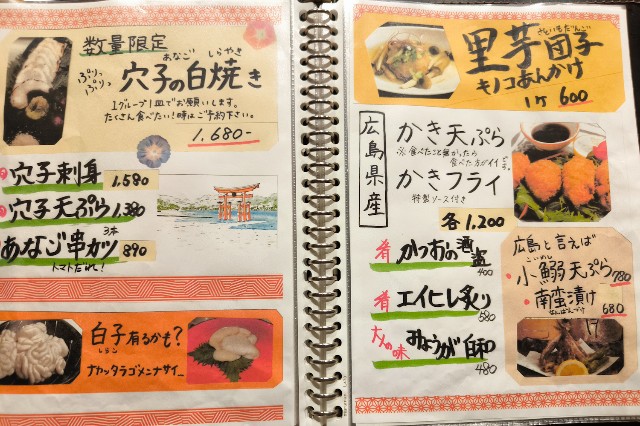 数量限定
ぷりっ
ぷりっ
あなご しらやき
穴子の白焼き
1グループ1皿でお願いします。
たくさん食べたい!時はご予約下さい。
1,680-
穴子刺身 1,580
穴子天ぷら 1,380
あなご串カツ 3本 890
トマトだれ!
白子有るかも?
しらこ
ナカッタラゴメンナサイ_
さといもだんご
里芋団子
キノコあんかけ
1ケ 600
広島県産
かき天ぷら
※食べたこと無かったら
食べた方がイイ
かきフライ
特製ソース付き
各1,200
肴 かつおの酒盗
400
肴 エイヒレ炙り
580
大人の味 みょうが白和
480
広島と言えば
こいわし
小鰯天ぷら
780
南蛮漬け
なんばんづけ
680